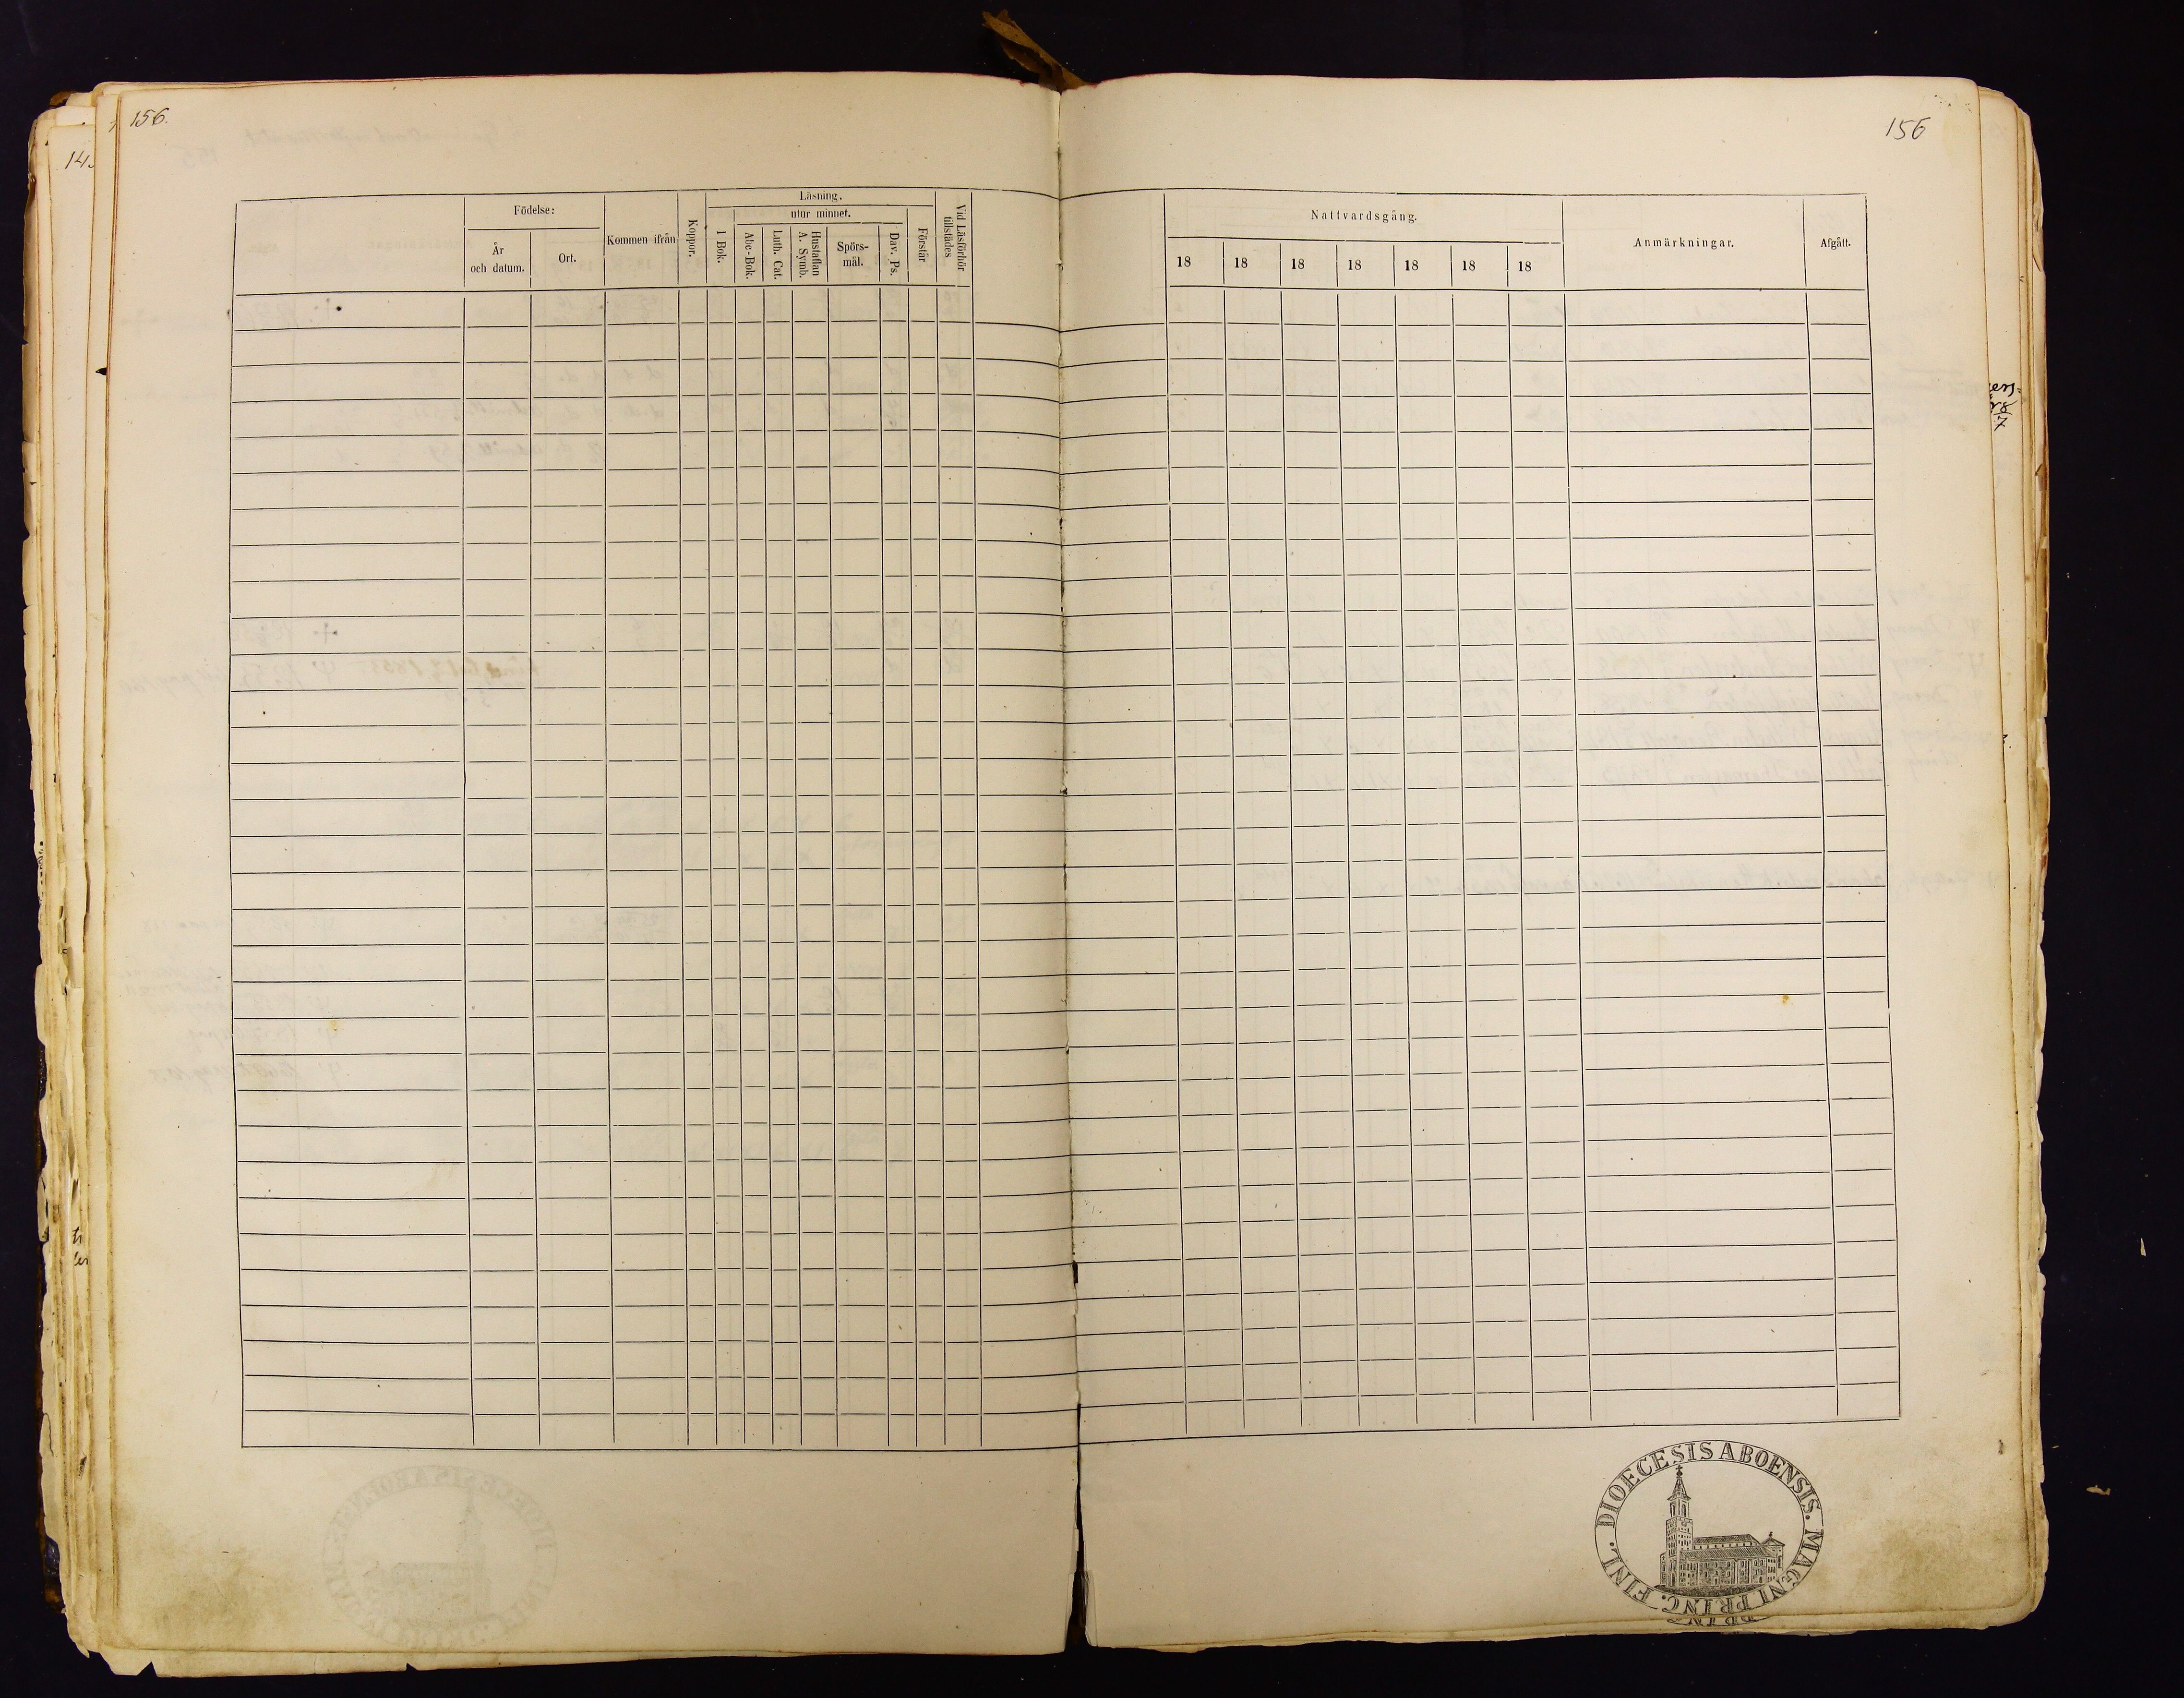 156.
156
14
Födelse:
År
och datum.
Ort.
Kommen ifrån
Koppor.
Läsning.
utur minnet.
I Bok.
Abc-Bok.
Luth. Cat.
Hustaflan
A. Symb.
Spörs-
mål.
Dav. Ps.
Förstår
Vid Läsförhör
tillstädes
Nattvardsgång.
18 18 18 18 18 18 18
Anmärkningar.
Afgått.
DIOECESIS ABOENSIS. MAGNI PRINC. FINL.